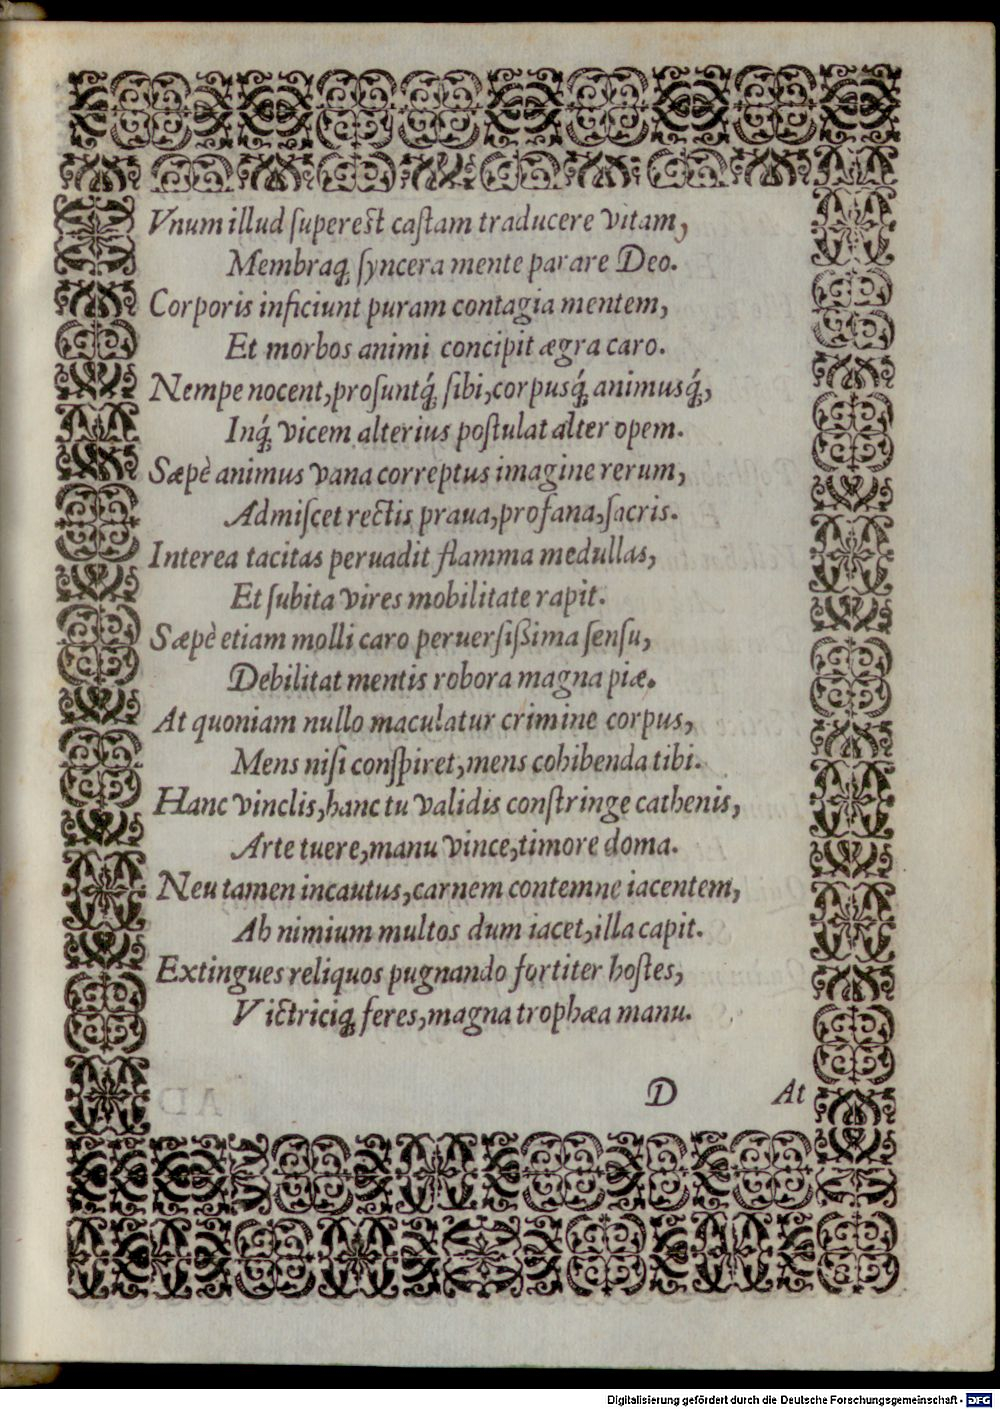 Vnum illud ſupereſt caſtam traducere vitam,
Membraq́ ſyncera mente parare Deo.
Corporis inficiunt puram contagia mentem,
Et morbos animi concipit ægra caro.
Nempe nocent, proſuntq́; ſibi, corpusq́; animusq́;,
Inq́; vicem alterius poſtulat alter opem.
Sæpè animus vana correptus imagine rerum,
Admiſcet rectis praua, profana, ſacris.
Interea tacitas peruadit flamma medullas,
Et ſubita vires mobilitate rapit.
Sæpè etiam molli caro peruerſißima ſenſu,
Debilitat mentis robora magna piæ.
At quoniam nullo maculatur crimine corpus,
Mens niſi conſpiret, mens cohibenda tibi.
Hanc vinclis, hanc tu validis conſtringe cathenis,
Arte tuere, manu vince, timore doma.
Neu tamen incautus, carnem contemne iacentem,
Ah nimium multos dum iacet, illa capit.
Extingues reliquos pugnando fortiter hoſtes,
Victriciq; feres, magna trophæa manu.
D At
Digitalisierung gefördert durch die Deutsche Forschungsgemeinschaft - DFG